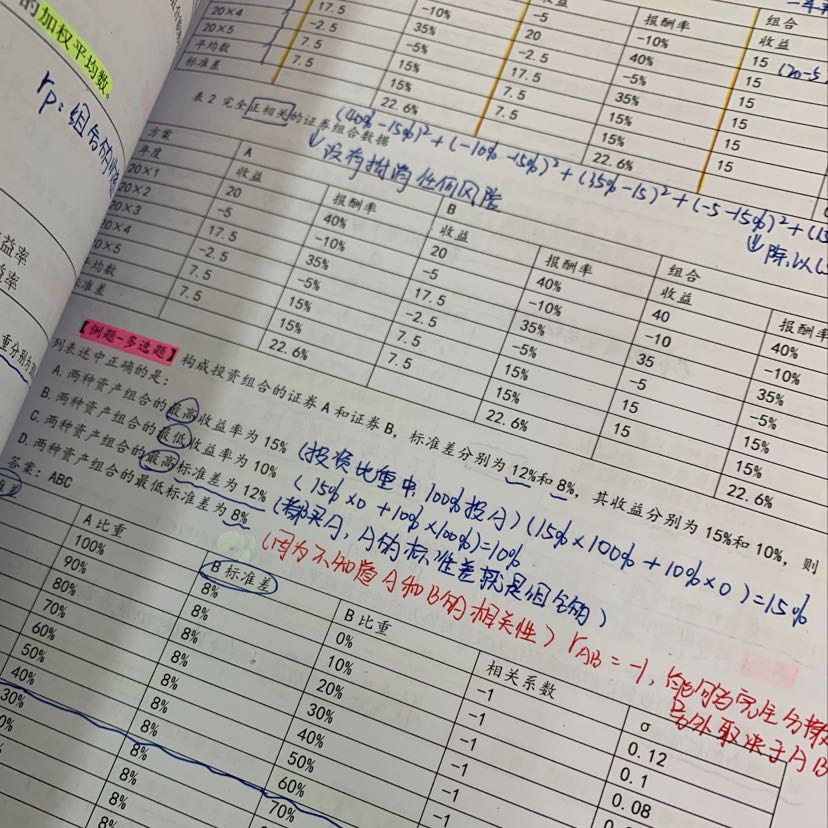 的加权平均数。
rp：组合
20×4 17.5 -10% -5 报酬率 组合
20×5 -2.5 35% 20 -10% 收益
平均数 7.5 -5% -2.5 40% 15
标准差 7.5 15% 17.5 -5% 15
22.6% 7.5 35% 15
7.5 15% 15
15% 15
22.6% 15
表2 完全正相关的证券组合数据
(40%-15%)²+(-10%-15%)²+(35%-15)²+(-5-15%)²+
↓没有抵消任何风险
↓除以
方案 A B 组合
年度 收益 报酬率 收益 报酬率 收益 报酬率
20×1 20 40% 20 40% 40 40%
20×2 -5 -10% -5 -10% -10 -10%
20×3 17.5 35% 17.5 35% 35 35%
20×4 -2.5 -5% -2.5 -5% -5 -5%
20×5 7.5 15% 7.5 15% 15 15%
平均数 7.5 15% 7.5 15% 15 15%
标准差 22.6% 22.6% 22.6%
【例题-多选题】构成投资组合的证券A和证券B，标准差分别为12%和8%，其收益分别为15%和10%，则
列表述中正确的是：
A.两种资产组合的最高收益率为15%（投资比重中100%投A）(15%×100%+10%×0)=15%
B.两种资产组合的最低收益率为10%（15%×0+10%×100%)=10%
C.两种资产组合的最高标准差为12%（都买A，A的标准差就是组合的）
D.两种资产组合的最低标准差为8%（因为不知道A和B的相关性）rAB=-1，
答案：ABC
另外取决于AB
A比重 B标准差 B比重 相关系数 σ
100% 8% 0% -1 0.12
90% 8% 10% -1 0.1
80% 8% 20% -1 0.08
70% 8% 30% -1
60% 8% 40% -1
50% 8% 50% -1
40% 8% 60%
30% 8% 70%